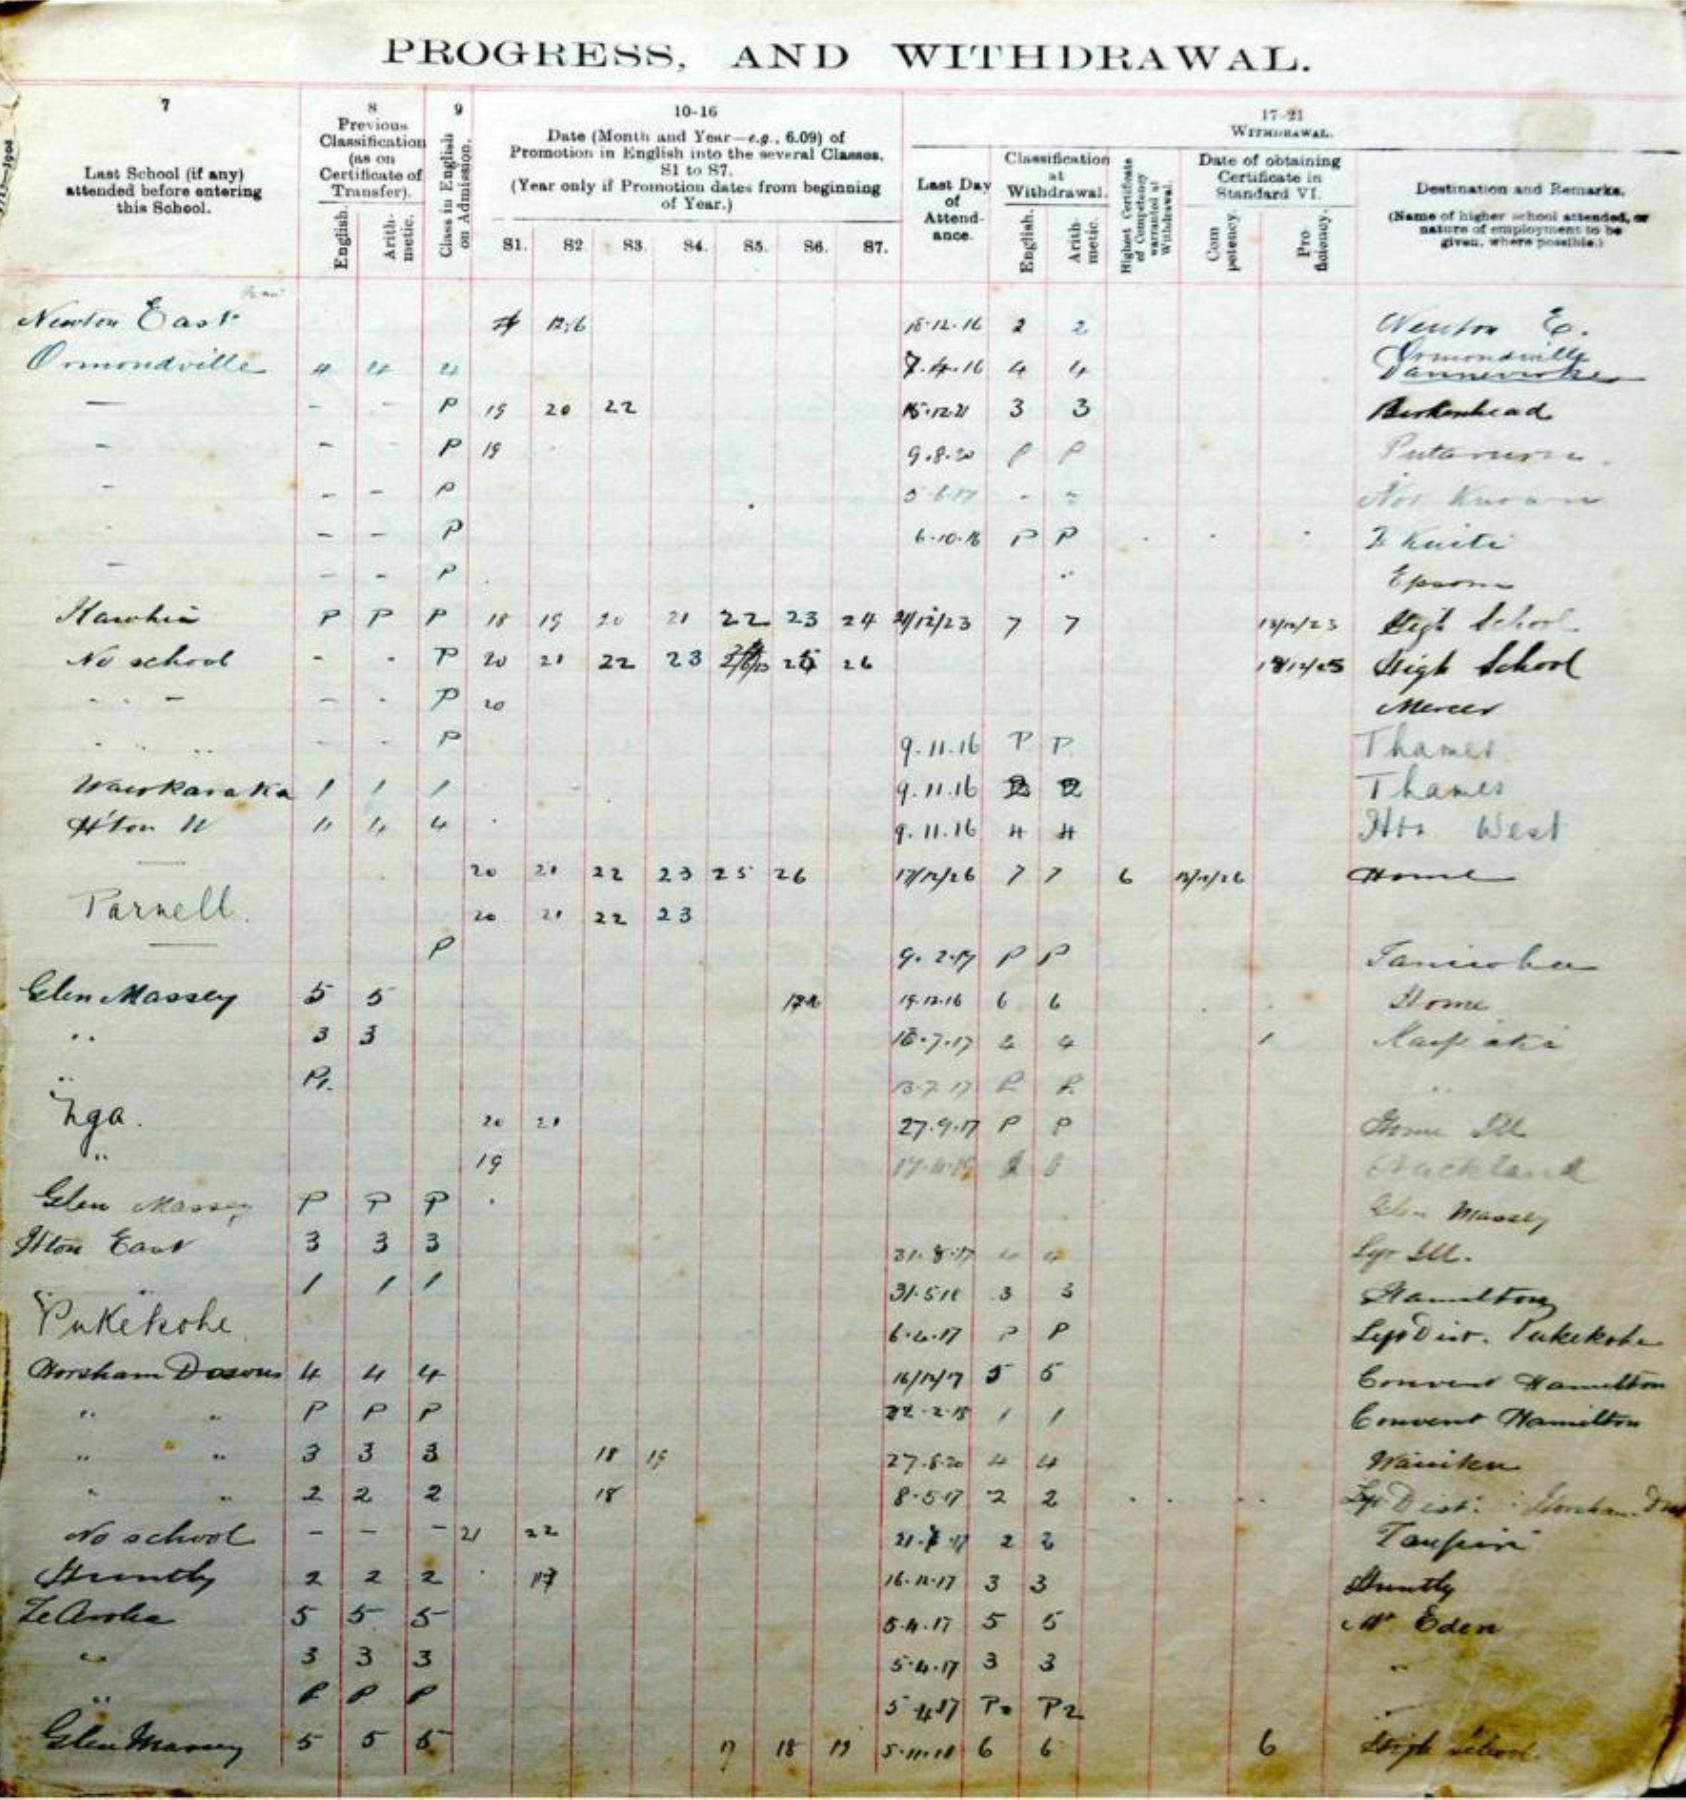 PROGRESS, AND WITHDRAWAL.
7
Last School (if any) attended before entering this School.
8
Previous Classification (as on Certificate of Transfer).
English.
Arith-metic.
9
Class in English on Admission.
10-16
Date (Month and Year—e.g., 6.09) of Promotion in English into the several Classes, S1 to S7.
(Year only if Promotion dates from beginning of Year.)
S1. S2 S3. S4. S5. S6. S7.
17-21
WITHDRAWAL.
Last Day of Attend-ance.
Classification at Withdrawal.
English.
Arith-metic.
Highest Certificate of Competency warranted at Withdrawal.
Date of obtaining Certificate in Standard VI.
Com petency.
Pro ficiency.
Destination and Remarks.
(Name of higher school attended, or nature of employment to be given, where possible.)
Newton East 12.16 18.12.16 2 2 Newton E.
Ormondville 4 4 4 7.4.16 4 4 Ormondville
Dannevirke
— - - P 19 20 22 15.12.21 3 3 Birkenhead
- - P 19 9.8.20 P P Putaruru.
- - - P Not Known
- - P 6.10.16 P P Te Kuiti
- - - P Epsom
Kawhia P P P 18 19 20 21 22 23 24 21/12/23 7 7 High School
No school - - P 20 21 22 23 26 High School
" " - - P 20 Mercer
" " " - - P 9.11.16 P P Thames
Waiokaraka 1 1 1 9.11.16 2 2 Thames
H'ton W 4 4 4 9.11.16 4 4 Htn West
— 20 21 22 23 25 26 17/12/26 7 7 6 Home
Parnell. 20 21 22 23
— P 9.2.17 P P Taniwha
Glen Massey 5 5 19.12.16 6 6 Home
" 3 3 16.7.17 4 4
" Pr. 13.7.17 P P "
Nga. 20 21 27.9.17 P P Home Ill
" 19 Auckland
Glen Massey P P P Glen Massey
Hton East 3 3 3 31.8.17 4 4 Left Ill.
" 1 1 1 31.5.18 3 3 Hamilton
Pukekohe 6.4.17 P P Left Dist. Pukekohe
Horsham Downs 4 4 4 5 5 Convent Hamilton
" " P P P 1 1 Convent Hamilton
" " 3 3 3 18 19 27.8.20 4 4
" " 2 2 2 18 8.5.17 2 2 Left Dist.
No school - - - 21 22 2 2 Taupiri
Huntly 2 2 2 17 3 3 Huntly
Te Aroha 5 5 5 5.4.17 5 5 Mt Eden
" 3 3 3 5.4.17 3 3 "
" P P P 5.4.17 P2 P2 "
Glen Massey 5 5 5 17 18 19 5.11.18 6 6 6 High School.